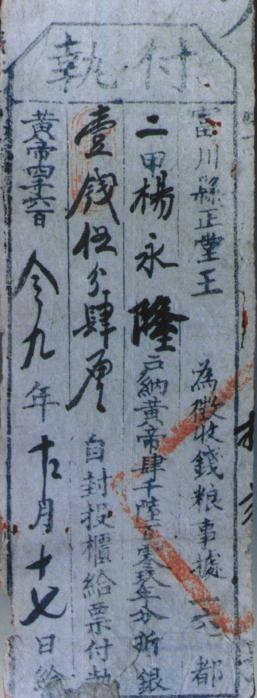 付執
富川縣正堂王 為徵收錢粮事據一六都
二甲楊永隆戶納黃帝肆千陸百零玖年分折銀
壹錢伍分肆厘 自封投櫃給票付執
黃帝四千六百令九年十二月十七日給